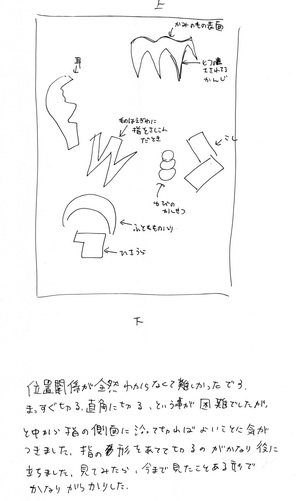 上
かみのもの表面
耳
とう嚢
さされてる
かんじ
ものはえぎわに
指をさしこん
だとき
こし
ゆびの
かんせつ
ふともものとり
ひざうら
下
位置関係が全然わからなくて難しかったです。
まっすぐ切る、直角に切る、という事が困難でしたが、
と中から指の側面に沿って切ればよいことに気が
つきました。指の形をあてて切るのがかなり役に
立ちました。見てみたら、今まで見たことある形で
かなりがっかりした。